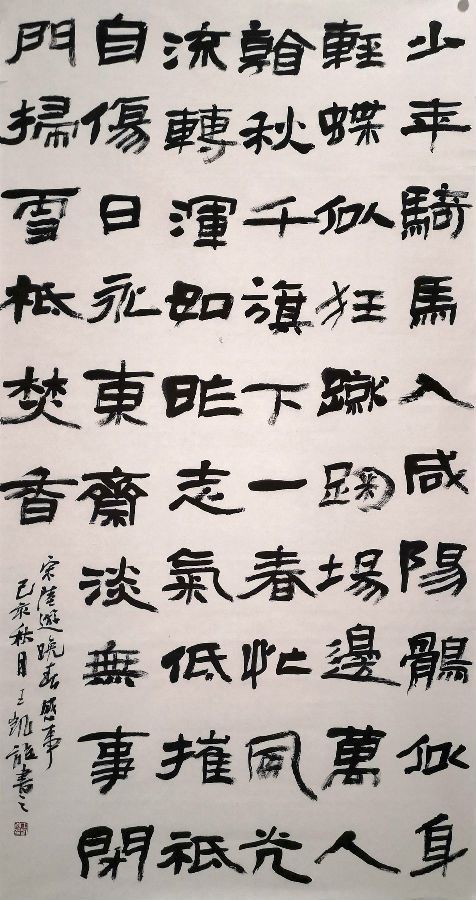 少年騎馬入咸陽鶻似身
輕蝶似狂蹴踘場邊萬人
看秋千旗下一春忙風光
流轉渾如昨志氣低摧祇
自傷日永東齋淡無事閉
門掃雪柢焚香
宋陸遊晚春感事
己亥秋月王書之